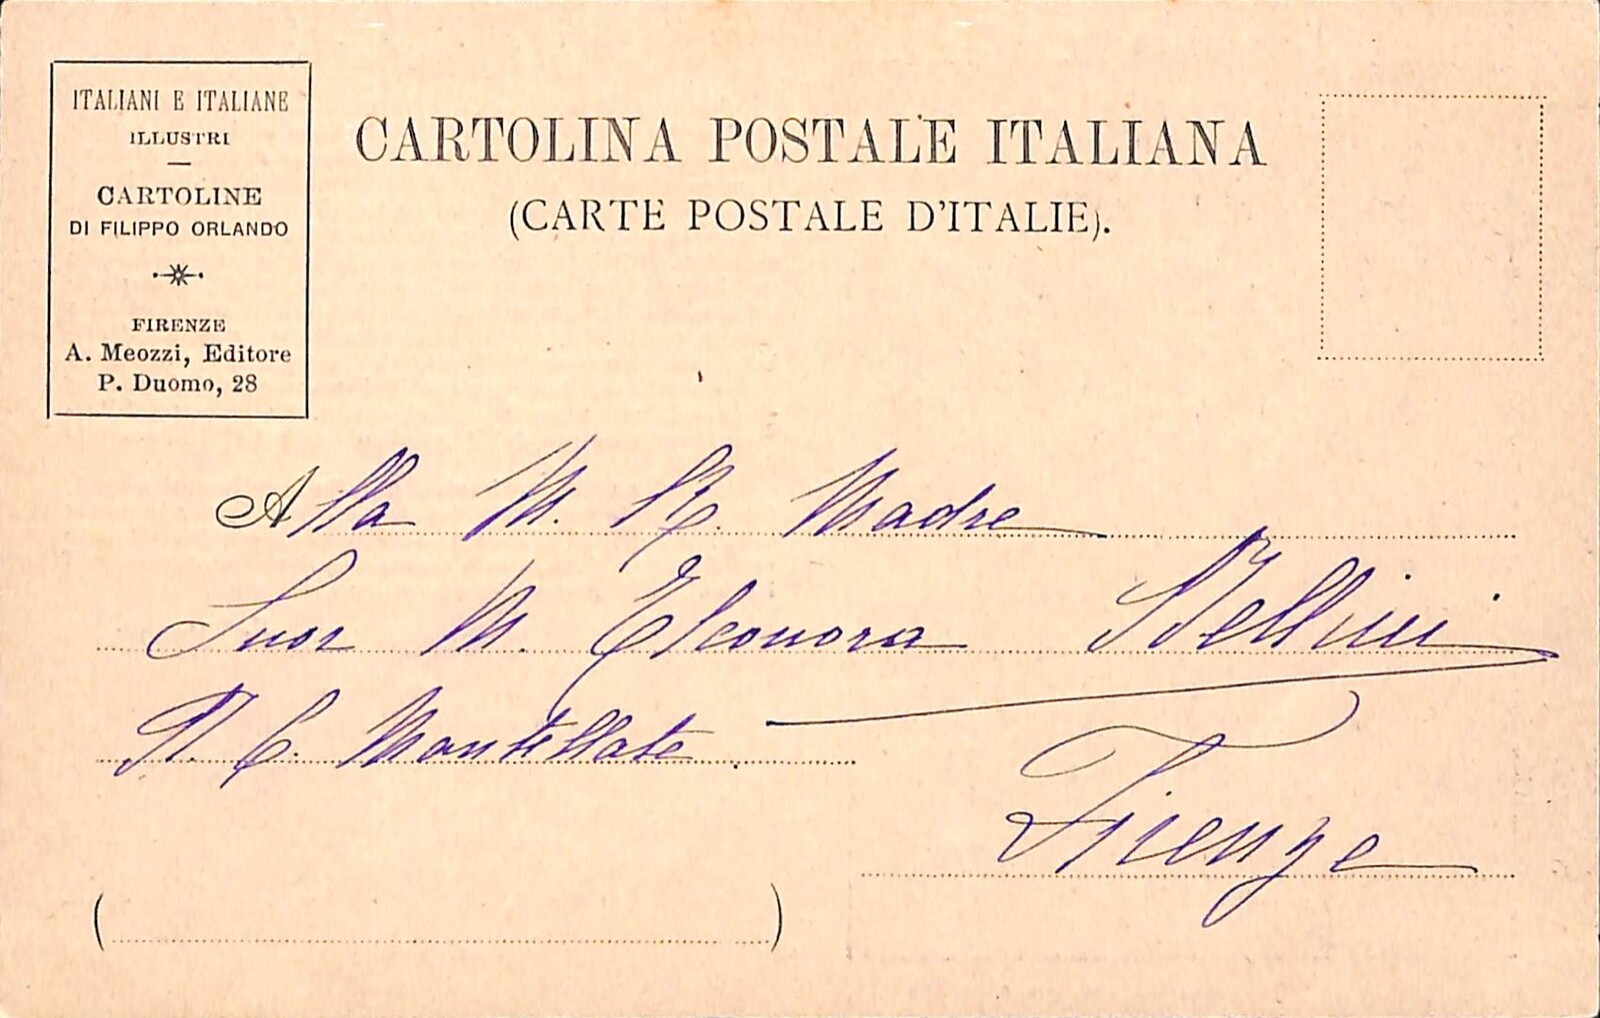 ITALIANI E ITALIANE
ILLUSTRI
CARTOLINE
DI FILIPPO ORLANDO
FIRENZE
A. Meozzi, Editore
P. Duomo, 28
CARTOLINA POSTALE ITALIANA
(CARTE POSTALE D'ITALIE).
Alla M. R. Madre
Suor M. Eleonora
C. Mantellate
Firenze